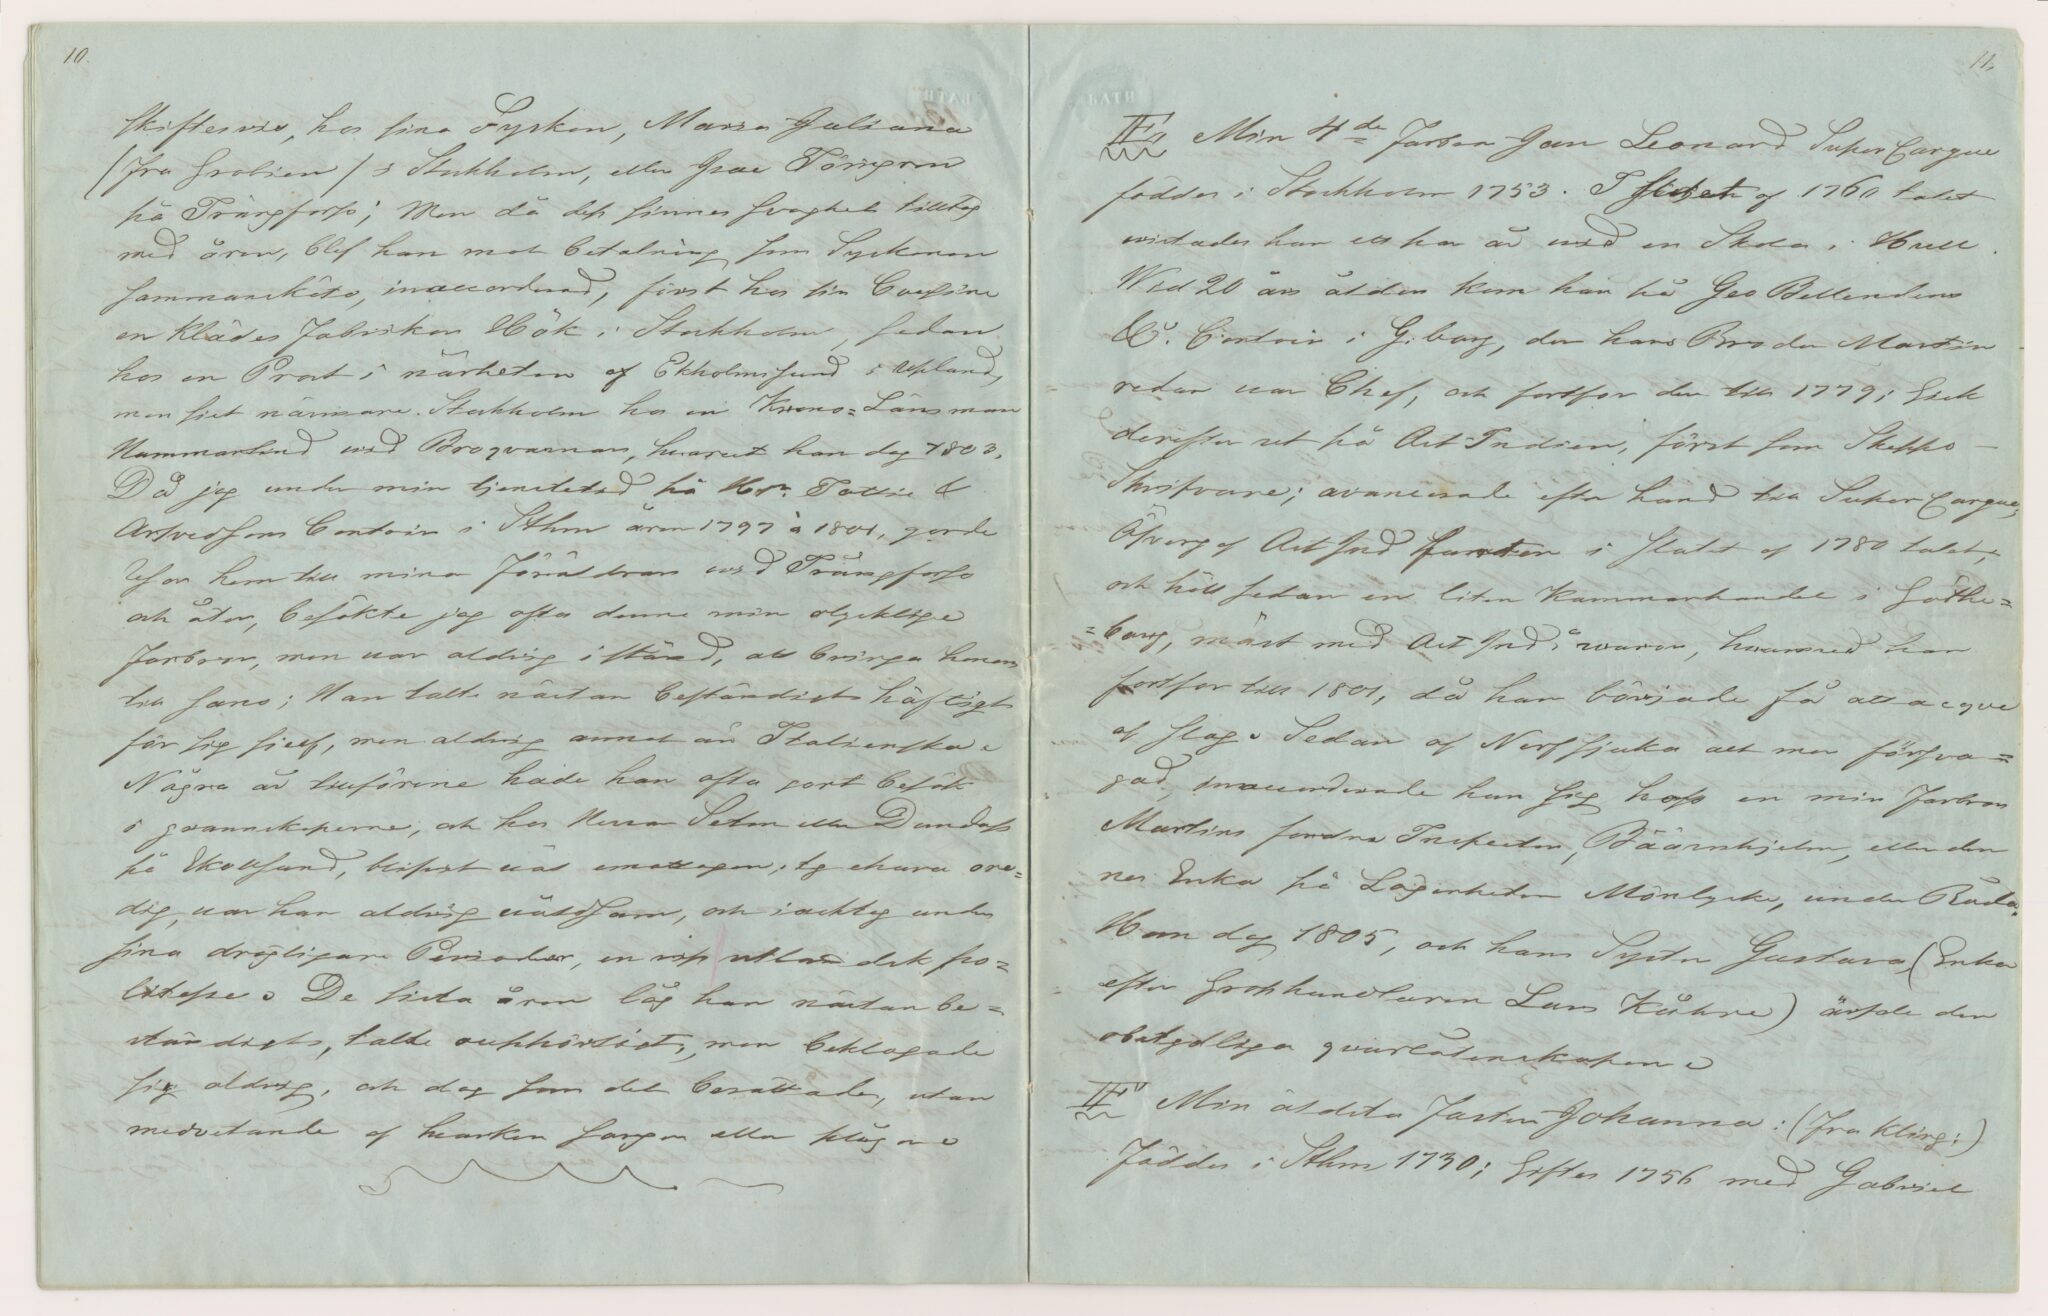 10.
skiftesvis, hos sina Syskon, Maria Juliana
(fru Grobien) i Stockholm, eller Isac Töringron
på Trångforss; Men då dess sinnes svaghet tilltog
med åren, blef han mot betalning, som Syskonen
sammansköto, inaccorderad, först hos sin Cousine
en Klädes Fabrikeur Hök i Stockholm, sedan
hos en Prost i närheten af Ekholmssund i Upland,
men sist närmare Stockholm hos en Krono-Länsman
Hammarlund vid Broqvarnarn, hvarest han dog 1803.
Då jag under min tjenstetid på Hrr. Tottie &
Arfvedsons Contoir i Sthm åren 1797 à 1801, gjorde
resor hem till mina Föräldrar vid Trångforss
och åter, besökte jag ofta denne min olycklige
Farbror, men var aldrig i stånd, att bringa honom
till sans; Han talte nästan beständigt häftigt
för sig sielf, men aldrig annat än Italienska.
Några år tillförene hade han ofta gort besök
i grannskaperne, och hos Herrar Seton eller Dundass
på Ekollsund, blifvit väl emottagen; ty ehuru ore=
dig, var han aldrig våldsam, och iakttog under
sina drägligare Perioder, en viss utländsk po=
litesse. De sista åren låg han nästan be=
ständigt, talte ouphörligt, men beklagade
sig aldrig, och dog som det berättades, utan
medvetande af hvarken sorger eller plågor.
11.
E, Min 4de Farbror Jan Leonard Super Cargue
föddes i Stockholm 1753. I slutet af 1760 talet
vistades han ett par år vid en Skola i Hull.
Wid 20 års åldern kom han på Geo Bellendens
&c. Contoir i G:borg, der hans Broder Martin
redan var Chef, och fortfor der till 1779; Gick
derefter ut på Ost Indien, först som Skepps-
Skrifvare; avancerade efter hand till Super Cargue,
Öfvergaf Ost Ind farten i slutet af 1780 talet,
och höll sedan en liten Kammarhandel i Göthe=
=borg, mäst med Ost Ind: varor, hvarmed han
fortfor till 1801, då han började få attacque
af slag. Sedan af Nerfsjuka allt mer försva=
gad, inaccorderade han sig hoss en min Farbror
Martins fordna Inspector, Bäärnhjelm, eller den
nes Enka på Lägenheten Mörlycke, under Råda.
Han dog 1805, och hans Syster Gustava, (Enka
efter Grosshandlaren Lars Kåhre) ärfde den
obetydliga qvarlåtenskapen.
F, Min äldsta Faster Johanna: (fru Kling:)
Föddes i Sthm 1730; Giftes 1756 med Gabriel